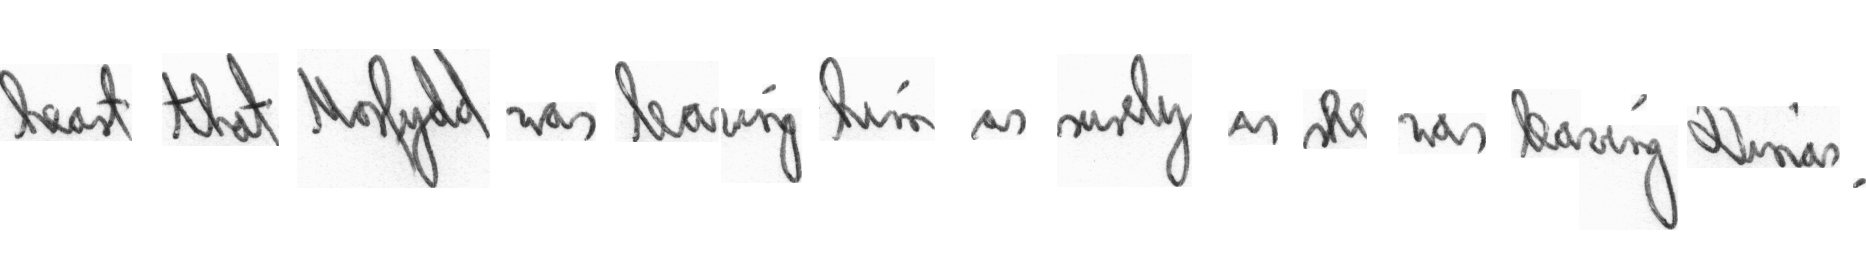 heart that Morfydd was leaving him as surely as she was leaving Ninias.